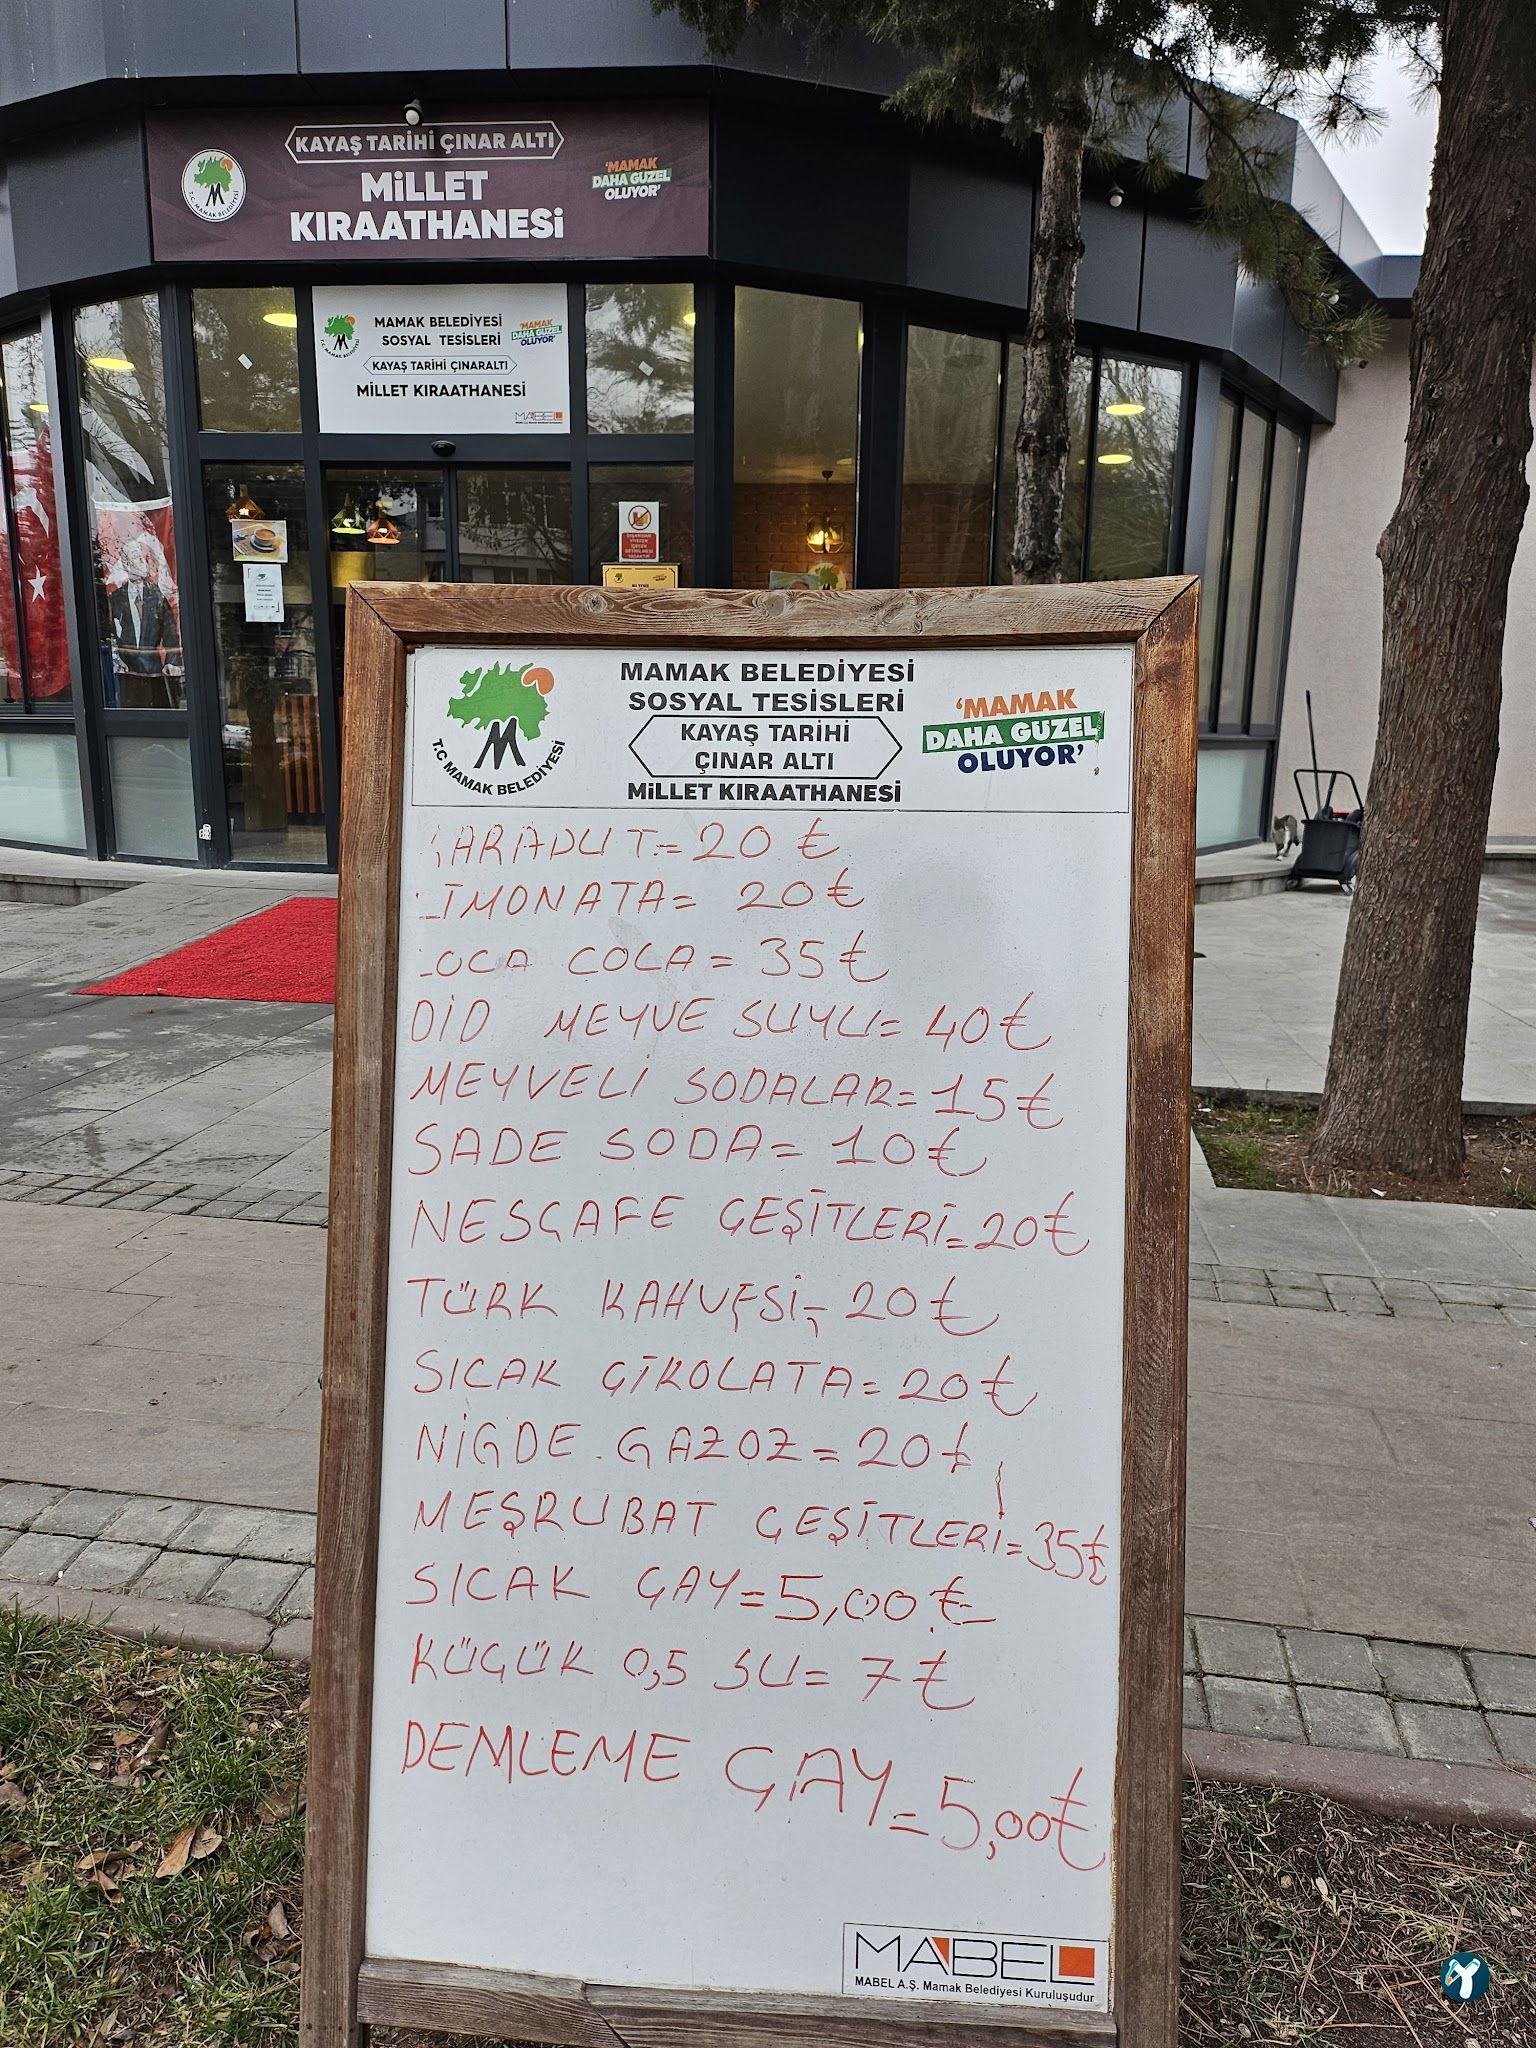 KAYAŞ TARİHİ ÇINAR ALTI
MiLLET
KIRAATHANESi
T.C. MAMAK BELEDİYESİ
'MAMAK
DAHA GÜZEL
OLUYOR'
MAMAK BELEDİYESİ
SOSYAL TESİSLERİ
KAYAŞ TARİHİ ÇINARALTI
MİLLET KIRAATHANESİ
T.C. MAMAK BELEDİYESİ
'MAMAK
DAHA GÜZEL
OLUYOR'
MABEL
DIŞARIDAN
YİYECEK
İÇECEK
GETİRİLMESİ
YASAKTIR
MAMAK BELEDİYESİ
SOSYAL TESİSLERİ
KAYAŞ TARİHİ
ÇINAR ALTI
MiLLET KIRAATHANESİ
T.C MAMAK BELEDİYESİ
'MAMAK
DAHA GÜZEL
OLUYOR'
KARADUT=20 ₺
LİMONATA= 20₺
COCA COLA= 35₺
DİD MEYVE SUYU= 40₺
MEYVELİ SODALAR=15₺
SADE SODA= 10₺
NESCAFE ÇEŞİTLERİ=20₺
TÜRK KAHVESİ= 20₺
SICAK ÇİKOLATA=20₺
NİGDE GAZOZ=20₺
MEŞRUBAT ÇEŞİTLERİ=35₺
SICAK ÇAY=5,00₺
KÜÇÜK 0,5 SU= 7₺
DEMLEME ÇAY=5,00₺
MABEL
MABEL A.Ş. Mamak Belediyesi Kuruluşudur